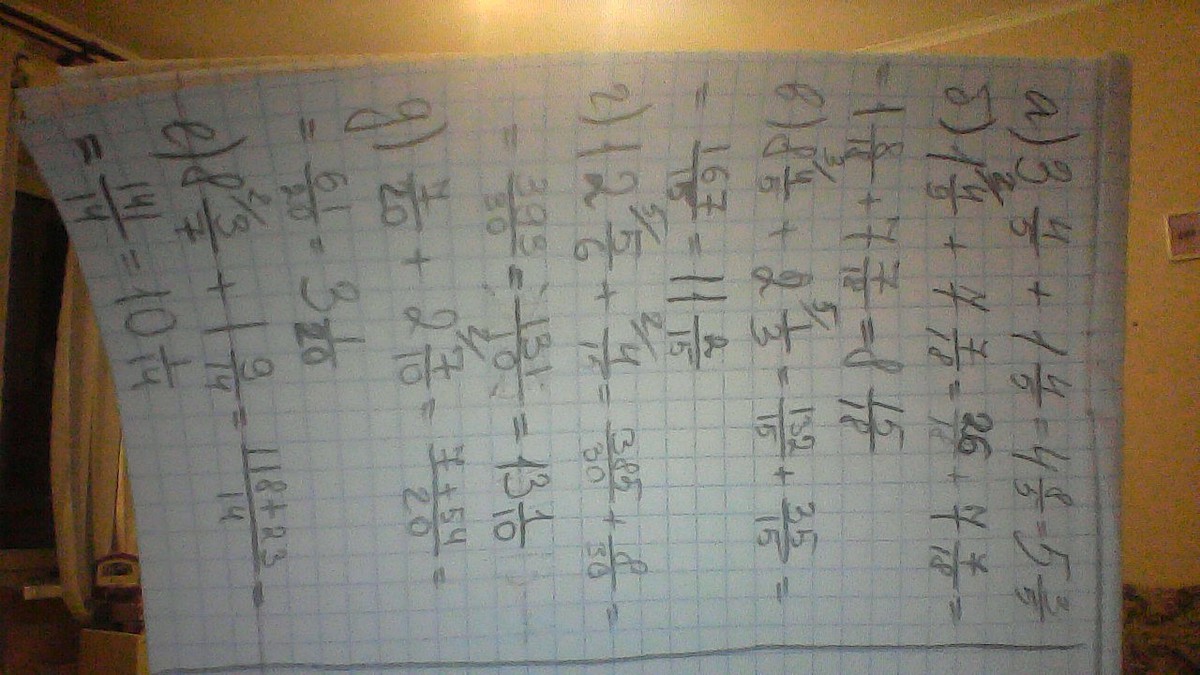 а) 3 4/5 + 1 4/5 = 4 8/5 = 5 3/5
б) 1 4/9 + 7 7/18 = 26/18 + 7 7/18 =
= 1 8/18 + 7 7/18 = 8 15/18
в) 8 4/5 + 2 1/3 = 132/15 + 35/15 =
= 167/15 = 11 2/15
г) 12 5/6 + 4/15 = 385/30 + 8/30 =
= 393/30 = 131/10 = 13 1/10
д) 7/20 + 2 7/10 = 7+54/20 =
= 61/20 = 3 1/20
е) 8 3/7 + 1 9/14 = 118+23/14 =
= 141/14 = 10 1/14